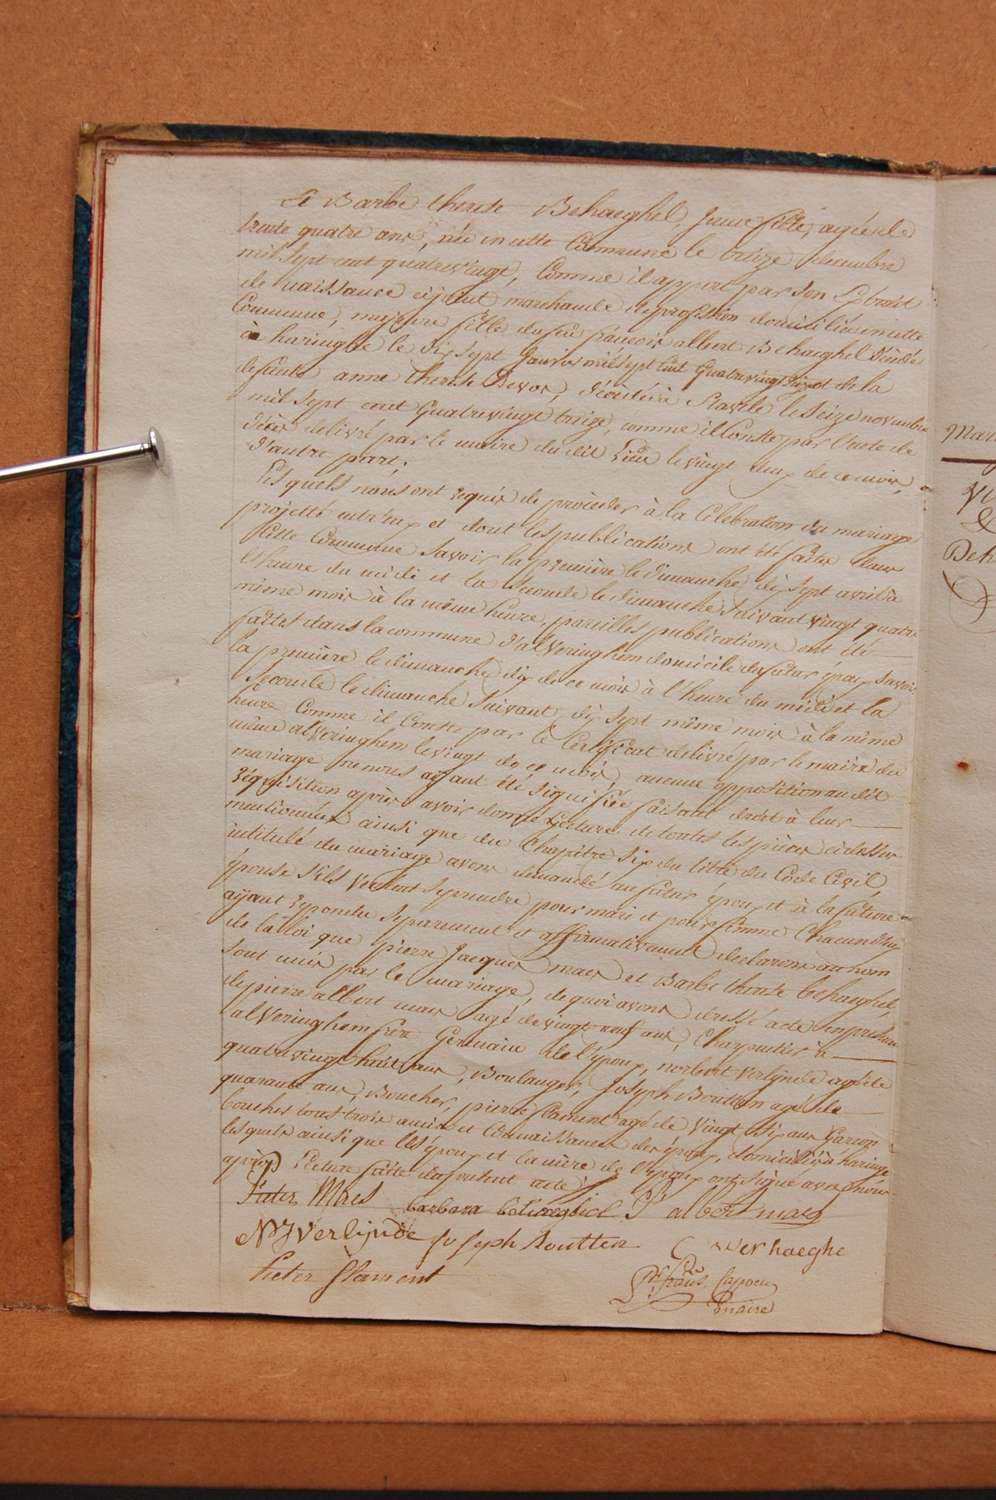 Et Barbe therese Behaeghel, jeune fille, agée de
trente quatre ans, née en cette Commune le treize decembre
mil sept cent quatrevingt, comme il appert par son Extrait
de naissance ejoint marchande de profession domiciliée en cette
Commune, majeure fille du feu françois albert Behaeghel décédé
à haringhe le dix sept janvier mil sept cent quatrevingt dix et de la
defunte anne therese Devos, décédée à Stavele le seize novembre
mil sept cent quatrevingt treize, comme il conste par l'acte de
décès delivré par le maire du dit Lieu le vingt deux de ce mois,
d'autre part;
Lesquels nous ont requis de procéder à la Celebration du mariage
projetté entr'eux et dont les publications ont été faites dans
Cette Commune Savoir la première le dimanche dix sept avril à
l'heure du midi et la seconde le dimanche suivant vingt quatre
même mois à la même heure, pareilles publications ont été
faites dans la commune d'alveringhem domicile du futur époux savoir
la première le dimanche dix de ce mois à l'heure du midi et la
Seconde le dimanche suivant dix sept même mois à la même
heure comme il Conste par le Certificat délivré par le maire du
même alveringhem le vingt de ce mois, aucune opposition au dit
mariage ne nous ayant été signifiée faisant droit à leur
requisition après avoir donné lecture de toutes les pièces cidessus
mentionnées ainsi que du Chapitre six du titre du Code Civil
intitulé du mariage avons demandé au futur époux et à la future
épouse s'ils veulent se prendre pour mari et pour femme Chacun d'eux
ayant repondu separement et affirmativement declarons au nom
de la loi que pierre Jacques maes et Barbe therese behaeghel,
Sont unis par le mariage, de quoi avons dressé acte en présence
de pierre albert maes agé de vingt neuf ans, Charpentier à
alveringhem frère Germain de l'époux, norbert verlynde agé de
quatrevingt huit ans, Boulanger, Joseph Boutten agé de
quarante ans, Boucher, pierre flament agé de vingt six ans Garçon
boucher tous trois amis et connaissances des époux, domiciliés à haringe
lesquels ainsi que les époux et la mère de l'époux ont signé avec nous
après lecture faite du présent acte
Pieter Maes barbara behaeghel P albert maes
N J Verlijnde Joseph Boutten C verhaeghe
Pieter flament
maire